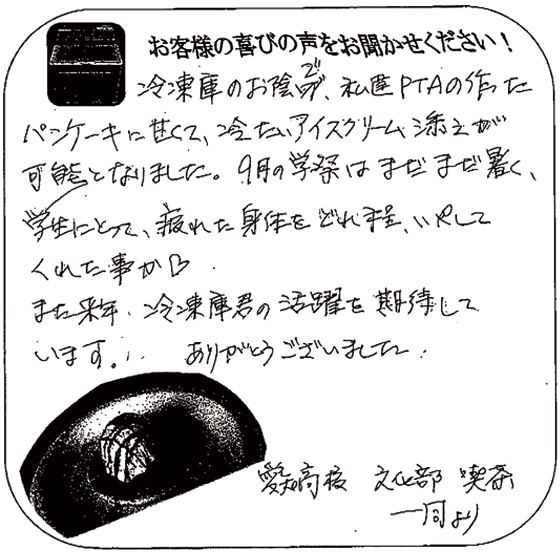 お客様の喜びの声をお聞かせください！
冷凍庫のお陰で、私達PTAの作った
パンケーキに甘くて、冷たいアイスクリーム添えが
可能となりました。9月の学祭はまだまだ暑く、
学生にとって、疲れた身体をどれ程、いやして
くれた事か♡
また来年、冷凍庫君の活躍を期待して
います。 ありがとうございました。
高校 文化部 喫茶
一同より